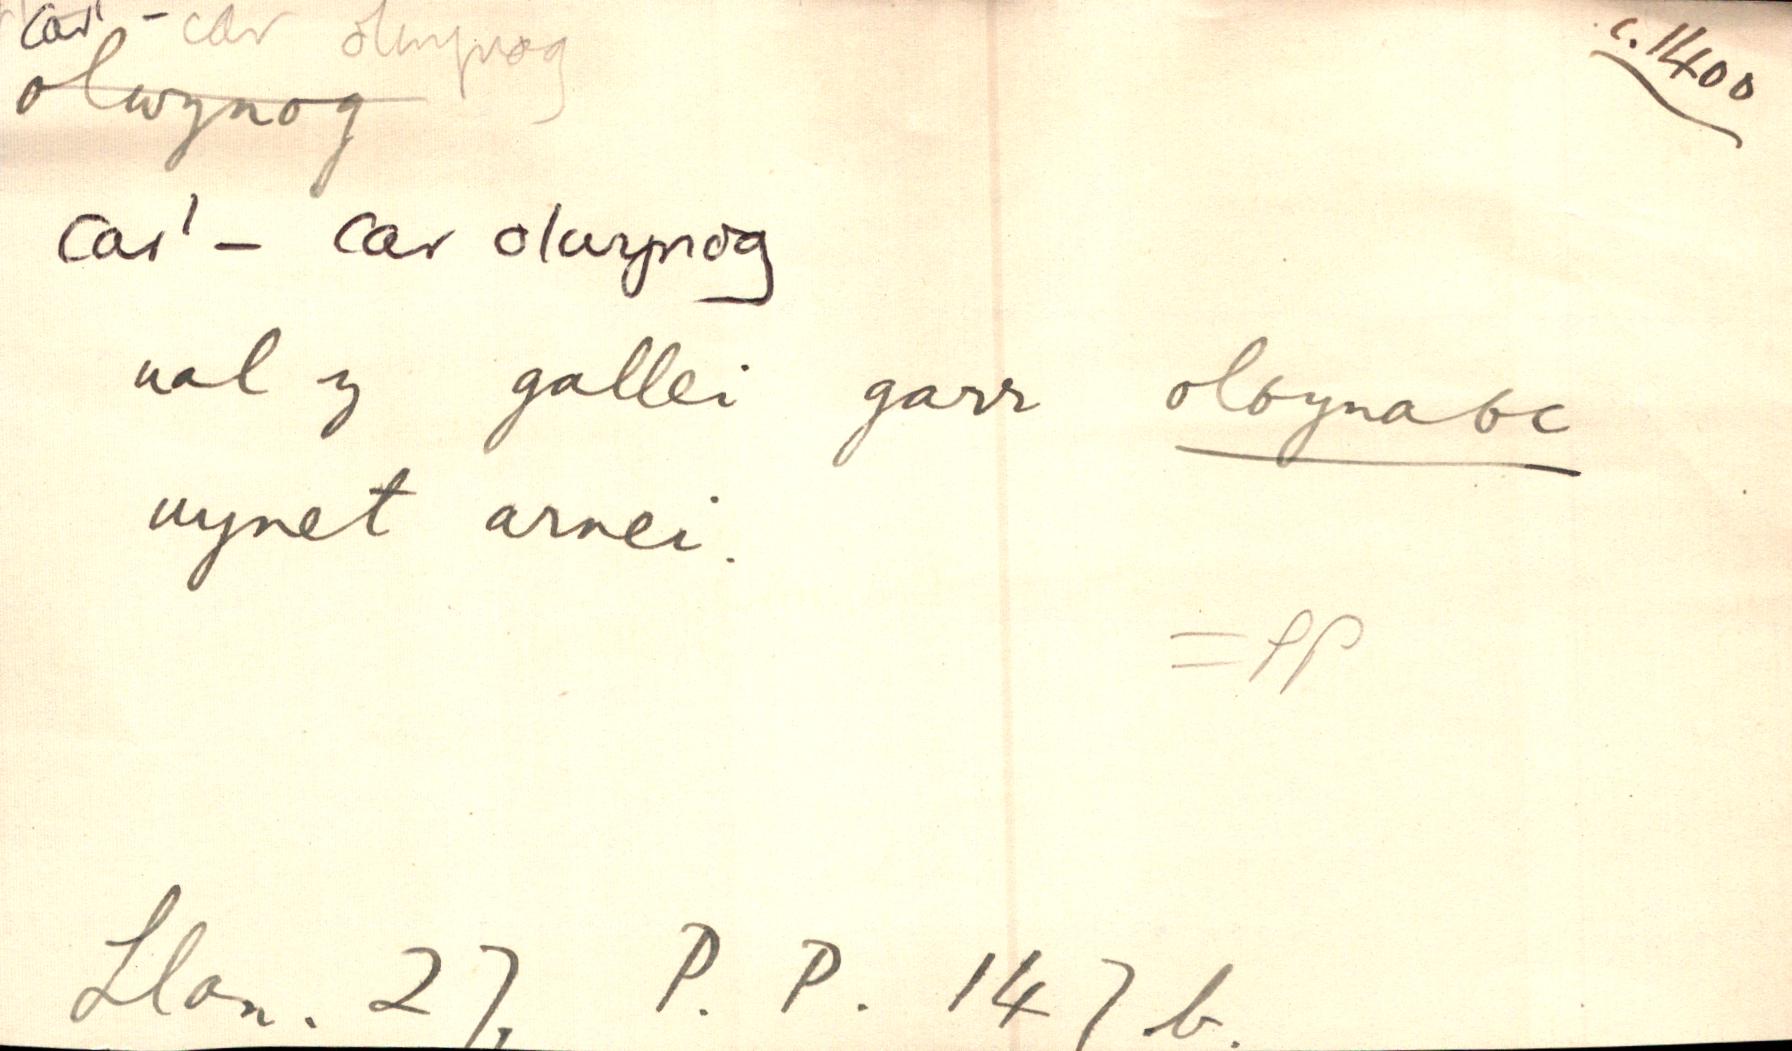 car¹ - car olwynog
c. 1400
olwynog
car¹ - car olwynog
ual y gallei garr olỽynaỽc
uynet arnei.
= PP
Llan. 27, P. P. 147 b.